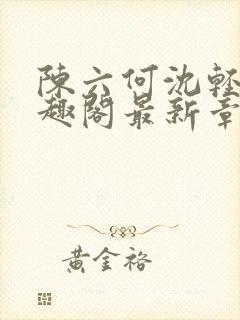 陳六何沈輕
趣閣最新章
黃金裕